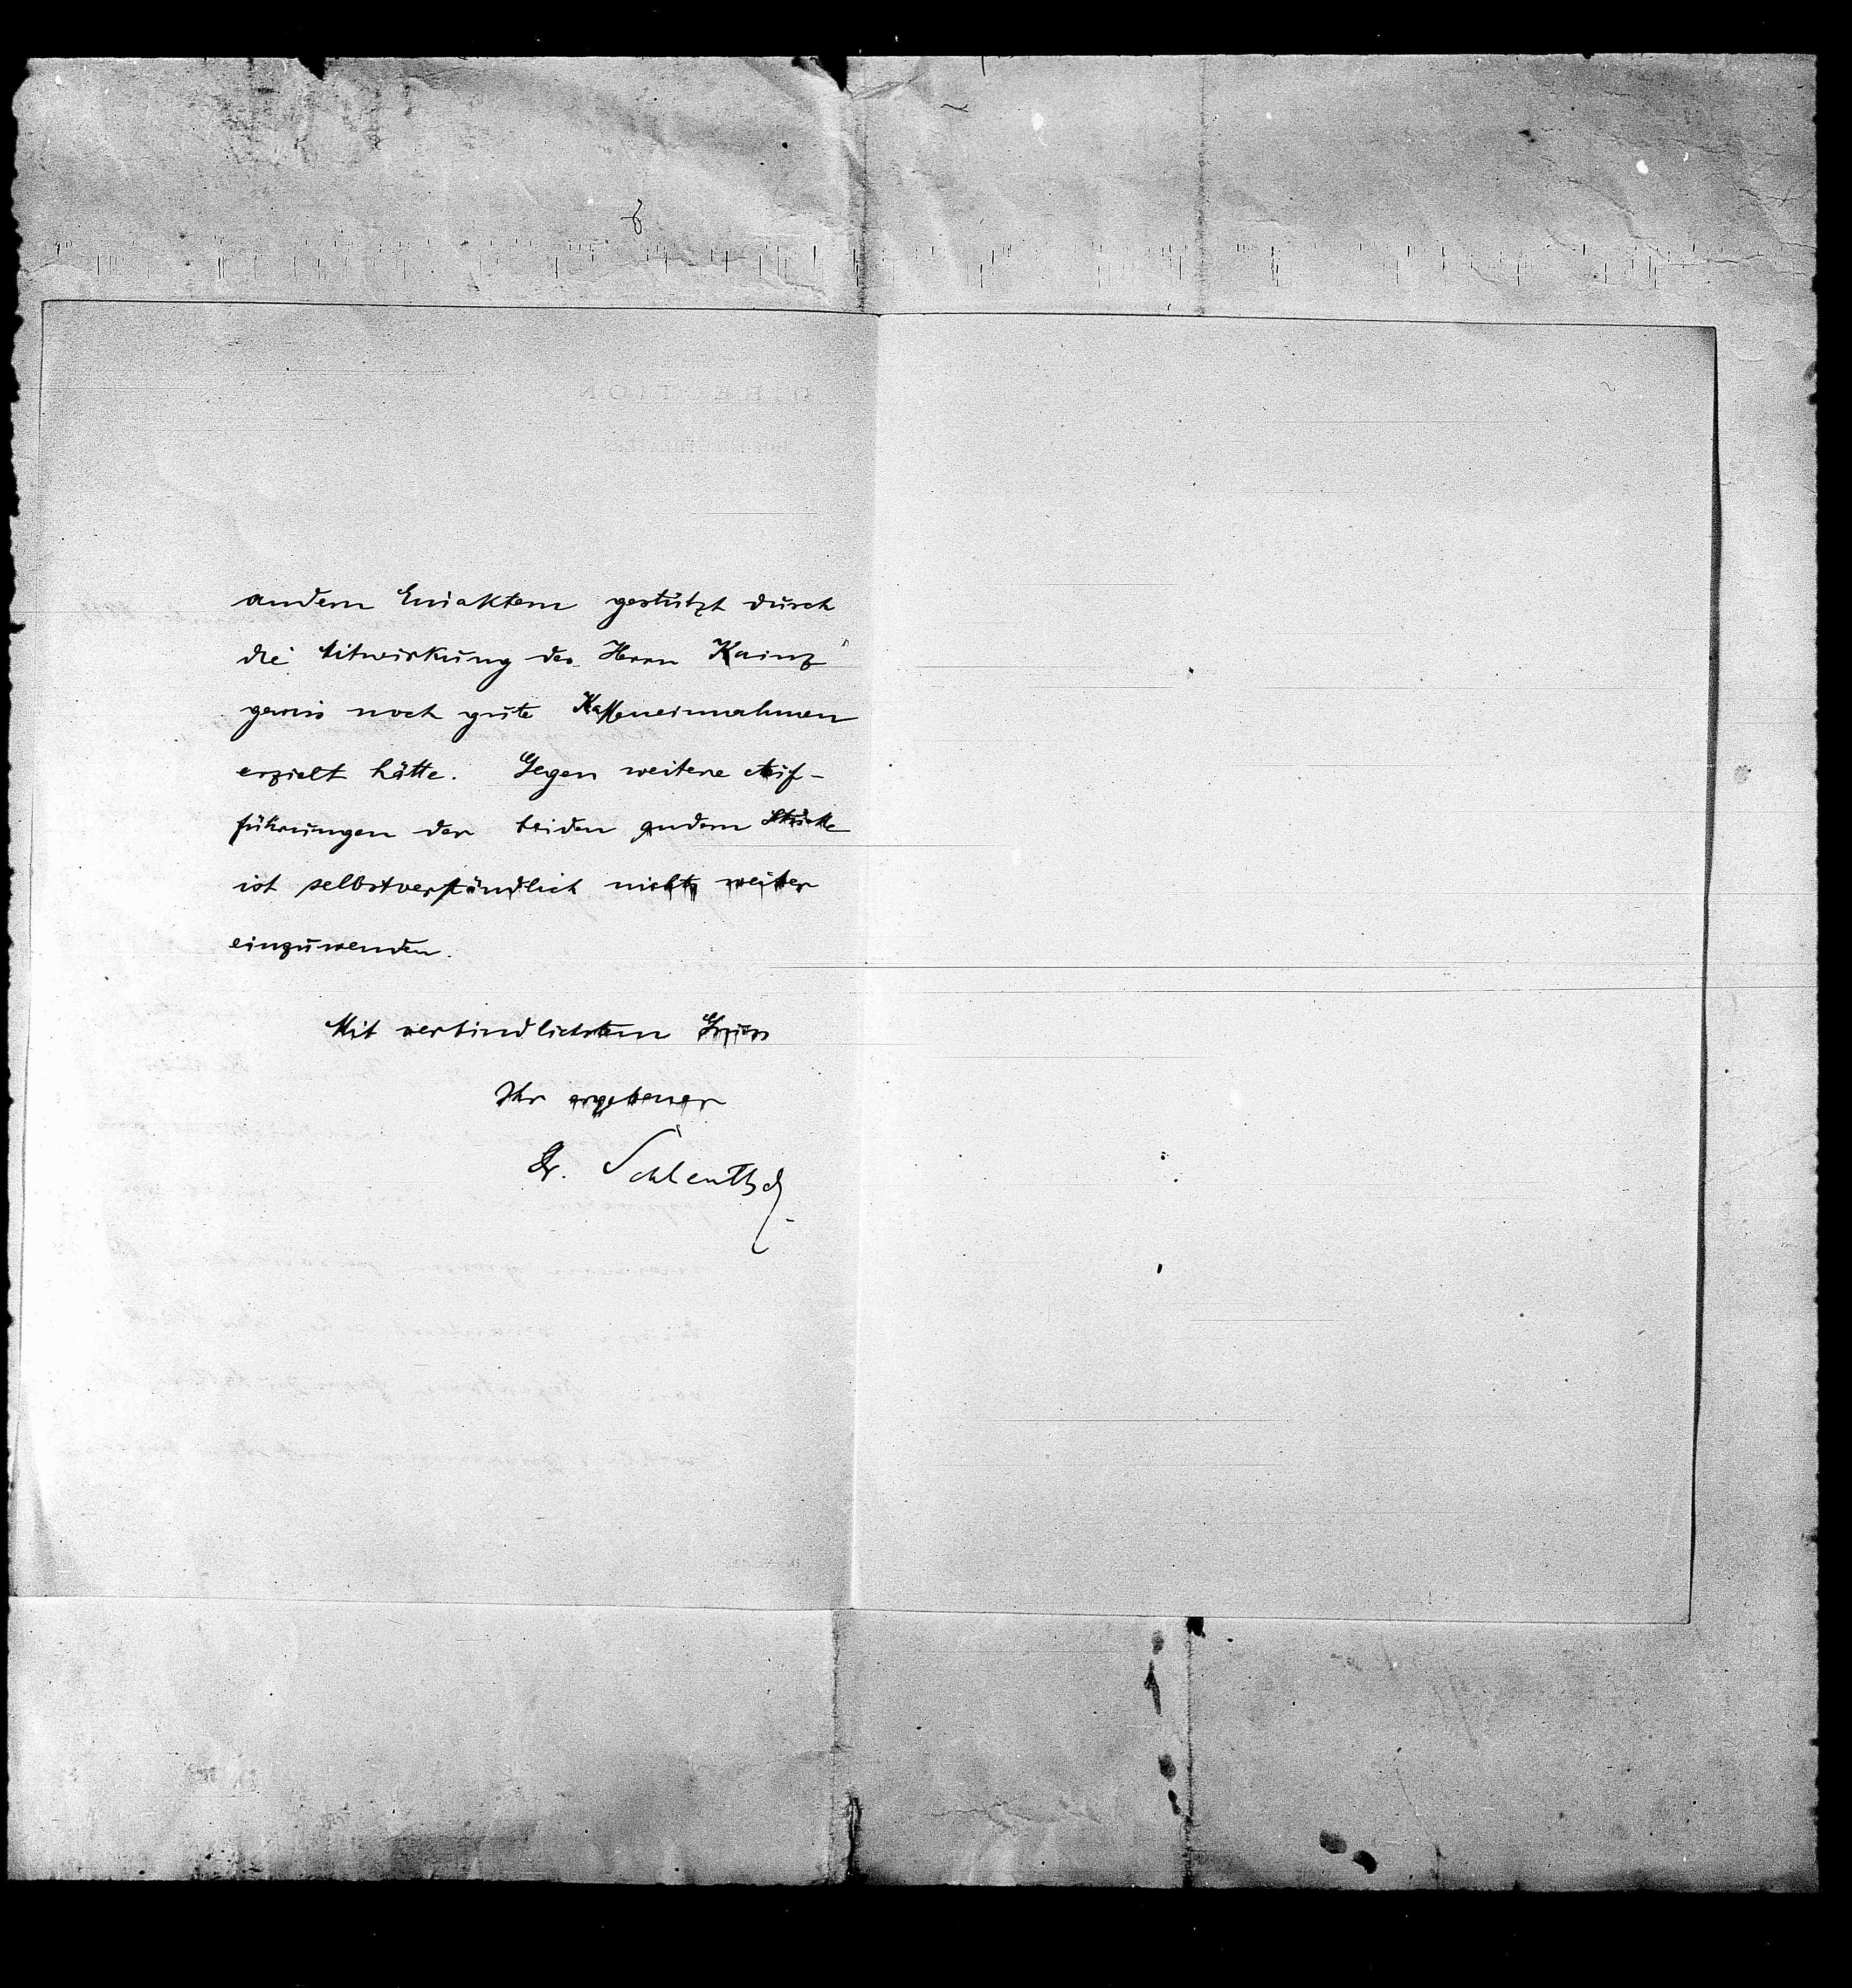 andern Einaktern gestützt durch
die Mitwirkung des Herrn Kainz
gewiss noch gute Kasseneinnahmen
erzielt hätte. Gegen weitere Auf-
führungen der beiden andern Stücke
ist selbstverständlich nichts weiter
einzuwenden.
Mit verbindlichstem Gruss
Ihr ergebener
Dr. Schlenther